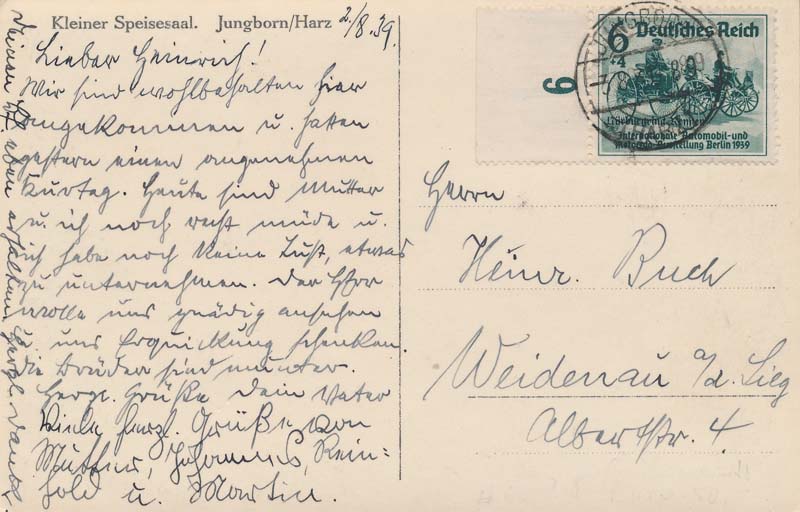 Kleiner Speisesaal. Jungborn/Harz 2/8.39.
Lieber Heinrich!
Wir sind wohlbehalten hier
angekommen u. hatten
gestern einen angenehmen
Kurtag. Heute sind Mutter
u. ich noch recht müde u.
ich habe noch keine Lust, etwas
zu unternehmen. Der Herr
wolle uns gnädig ansehen
u. uns Erquickung schenken.
die Brüder sind munter.
Herzl. Grüße Dein Vater
Viele herzl. Grüße von
Mutter, Johannes, Rein-
hold u. Martin.
Deinen eben erhalten, herzl. Dank!
6
6 Deutsches Reich
+4
Nürburgring-Rennen
Internationale Automobil-und
Motorrad-Ausstellung Berlin 1939
JUNGBORN
Herrn
Heinr. Buch
Weidenau a/d. Sieg
Albertstr. 4